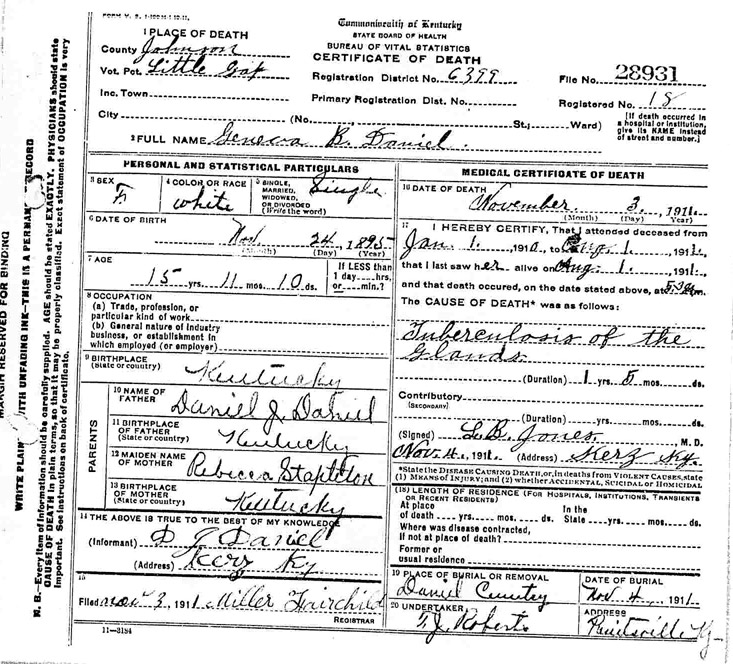 FORM V. S. 1-100M-1-10-11.
Commonwealth of Kentucky
STATE BOARD OF HEALTH
BUREAU OF VITAL STATISTICS
CERTIFICATE OF DEATH
1 PLACE OF DEATH
County Johnson
Vot. Pct. Little Gap
Inc. Town
City
Registration District No. 6399
Primary Registration Dist. No.
(No. St.; Ward)
File No. 28931
Registered No. 18
[If death occurred in a hospital or institution, give its NAME instead of street and number.]
2 FULL NAME Geneva B. Daniel.
PERSONAL AND STATISTICAL PARTICULARS
3 SEX F
4 COLOR OR RACE white
5 SINGLE, MARRIED, WIDOWED, OR DIVORCED (Write the word) Single
6 DATE OF BIRTH Nov. 24, 1895
(Month) (Day) (Year)
7 AGE 15 yrs. 11 mos. 10 ds.
If LESS than 1 day....hrs. or....min.?
8 OCCUPATION
(a) Trade, profession, or particular kind of work
(b) General nature of industry business, or establishment in which employed (or employer)
9 BIRTHPLACE (State or country) Kentucky
PARENTS
10 NAME OF FATHER Daniel J. Daniel
11 BIRTHPLACE OF FATHER (State or country) Kentucky
12 MAIDEN NAME OF MOTHER Rebecca Stapleton
13 BIRTHPLACE OF MOTHER (State or country) Kentucky
14 THE ABOVE IS TRUE TO THE BEST OF MY KNOWLEDGE
(Informant) D J Daniel
(Address) Kerz Ky
15
Filed Nov 3, 1911 Miller Fairchild
REGISTRAR
11-3184
MEDICAL CERTIFICATE OF DEATH
16 DATE OF DEATH
November 3, 1911.
(Month) (Day) (Year)
17 I HEREBY CERTIFY, That I attended deceased from
Jan. 1. 1910, to Aug. 1. 1911,
that I last saw her alive on Aug. 1. 1911.
and that death occured, on the date stated above, at m.
The CAUSE OF DEATH* was as follows:
Tuberculosis of the
Glands
(Duration) 1 yrs. 5 mos. ds.
Contributory
(SECONDARY)
(Duration) yrs. mos. ds.
(Signed) L.B. Jones, M. D.
Nov. 4. 1911. (Address) Kerz Ky.
*State the DISEASE CAUSING DEATH, or, in deaths from VIOLENT CAUSES, state (1) MEANS OF INJURY; and (2) whether ACCIDENTAL, SUICIDAL or HOMICIDAL
(18) LENGTH OF RESIDENCE (FOR HOSPITALS, INSTITUTIONS, TRANSIENTS OR RECENT RESIDENTS)
At place of death yrs. mos. ds. In the State yrs. mos. ds.
Where was disease contracted, If not at place of death?
Former or usual residence
19 PLACE OF BURIAL OR REMOVAL
Daniel Cemetery
DATE OF BURIAL
Nov. 4, 1911
20 UNDERTAKER
T. J. Roberts
ADDRESS
Paintsville Ky.
MARGIN RESERVED FOR BINDING
WRITE PLAIN WITH UNFADING INK—THIS IS A PERMAN RECORD
N. B.—Every item of information should be carefully supplied. AGE should be stated EXACTLY. PHYSICIANS should state
CAUSE OF DEATH in plain terms, so that it may be properly classified. Exact statement of OCCUPATION is very
important. See instructions on back of certificate.